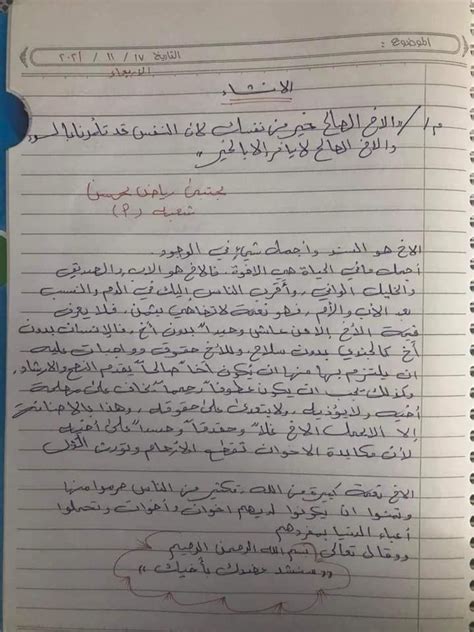 الموضوع :
التاريخ ١٧ / ١١ / ٢٠٢١
الاربعاء
الانشاء
م١/ والاخ الصالح خير من نفسك لان النفس قد تأمرنا بالسوء
والاخ الصالح لا يأمر الا بالخير"
مجتبى رياض محسن
شعبة (م)
الاخ هو السند وأجمل شيءٍ في الوجود.
أجمل مافي الحياة هي الاخوة. فالاخ هو الاب والصديق
والخليل الوافي، وأقرب الناس إليك في الدم والنسب
بعد الأب والأم، فهو نعمة لاتضاهى بثمن، فلا يعرف
قيمة الأخ إلا من عاش وحيداً بدون أخ، فالإنسان بدون
أخ كالجندي بدون سلاح، وللاخ حقوق وواجبات عليه
ان يلتزم بها منها ان يكون أخاً صالحاً يقدم النصح والارشاد،
وكذلك يجب ان يكون عطوفاً رحيماً يخاف على مصلحة
أخيه ولا يؤذيه، ولا يتعدى على حقوقه، وهذا بالاضافة
إلا لايحمل الاخ غلاً وحقداً وحسداً على أخيه
لأن مكايدة الاخوان تقطع الارحام وتورث الغل
الاخ نعمة كبيرة من الله، فكثير من الناس حرموا منها
وتمنوا ان يكونوا لديهم اخوان وأخوات وتحملوا
أعباء الدنيا بمفردهم
وقال تعالى بسم الله الرحمن الرحيم
"سنشد عضدك بأخيك"